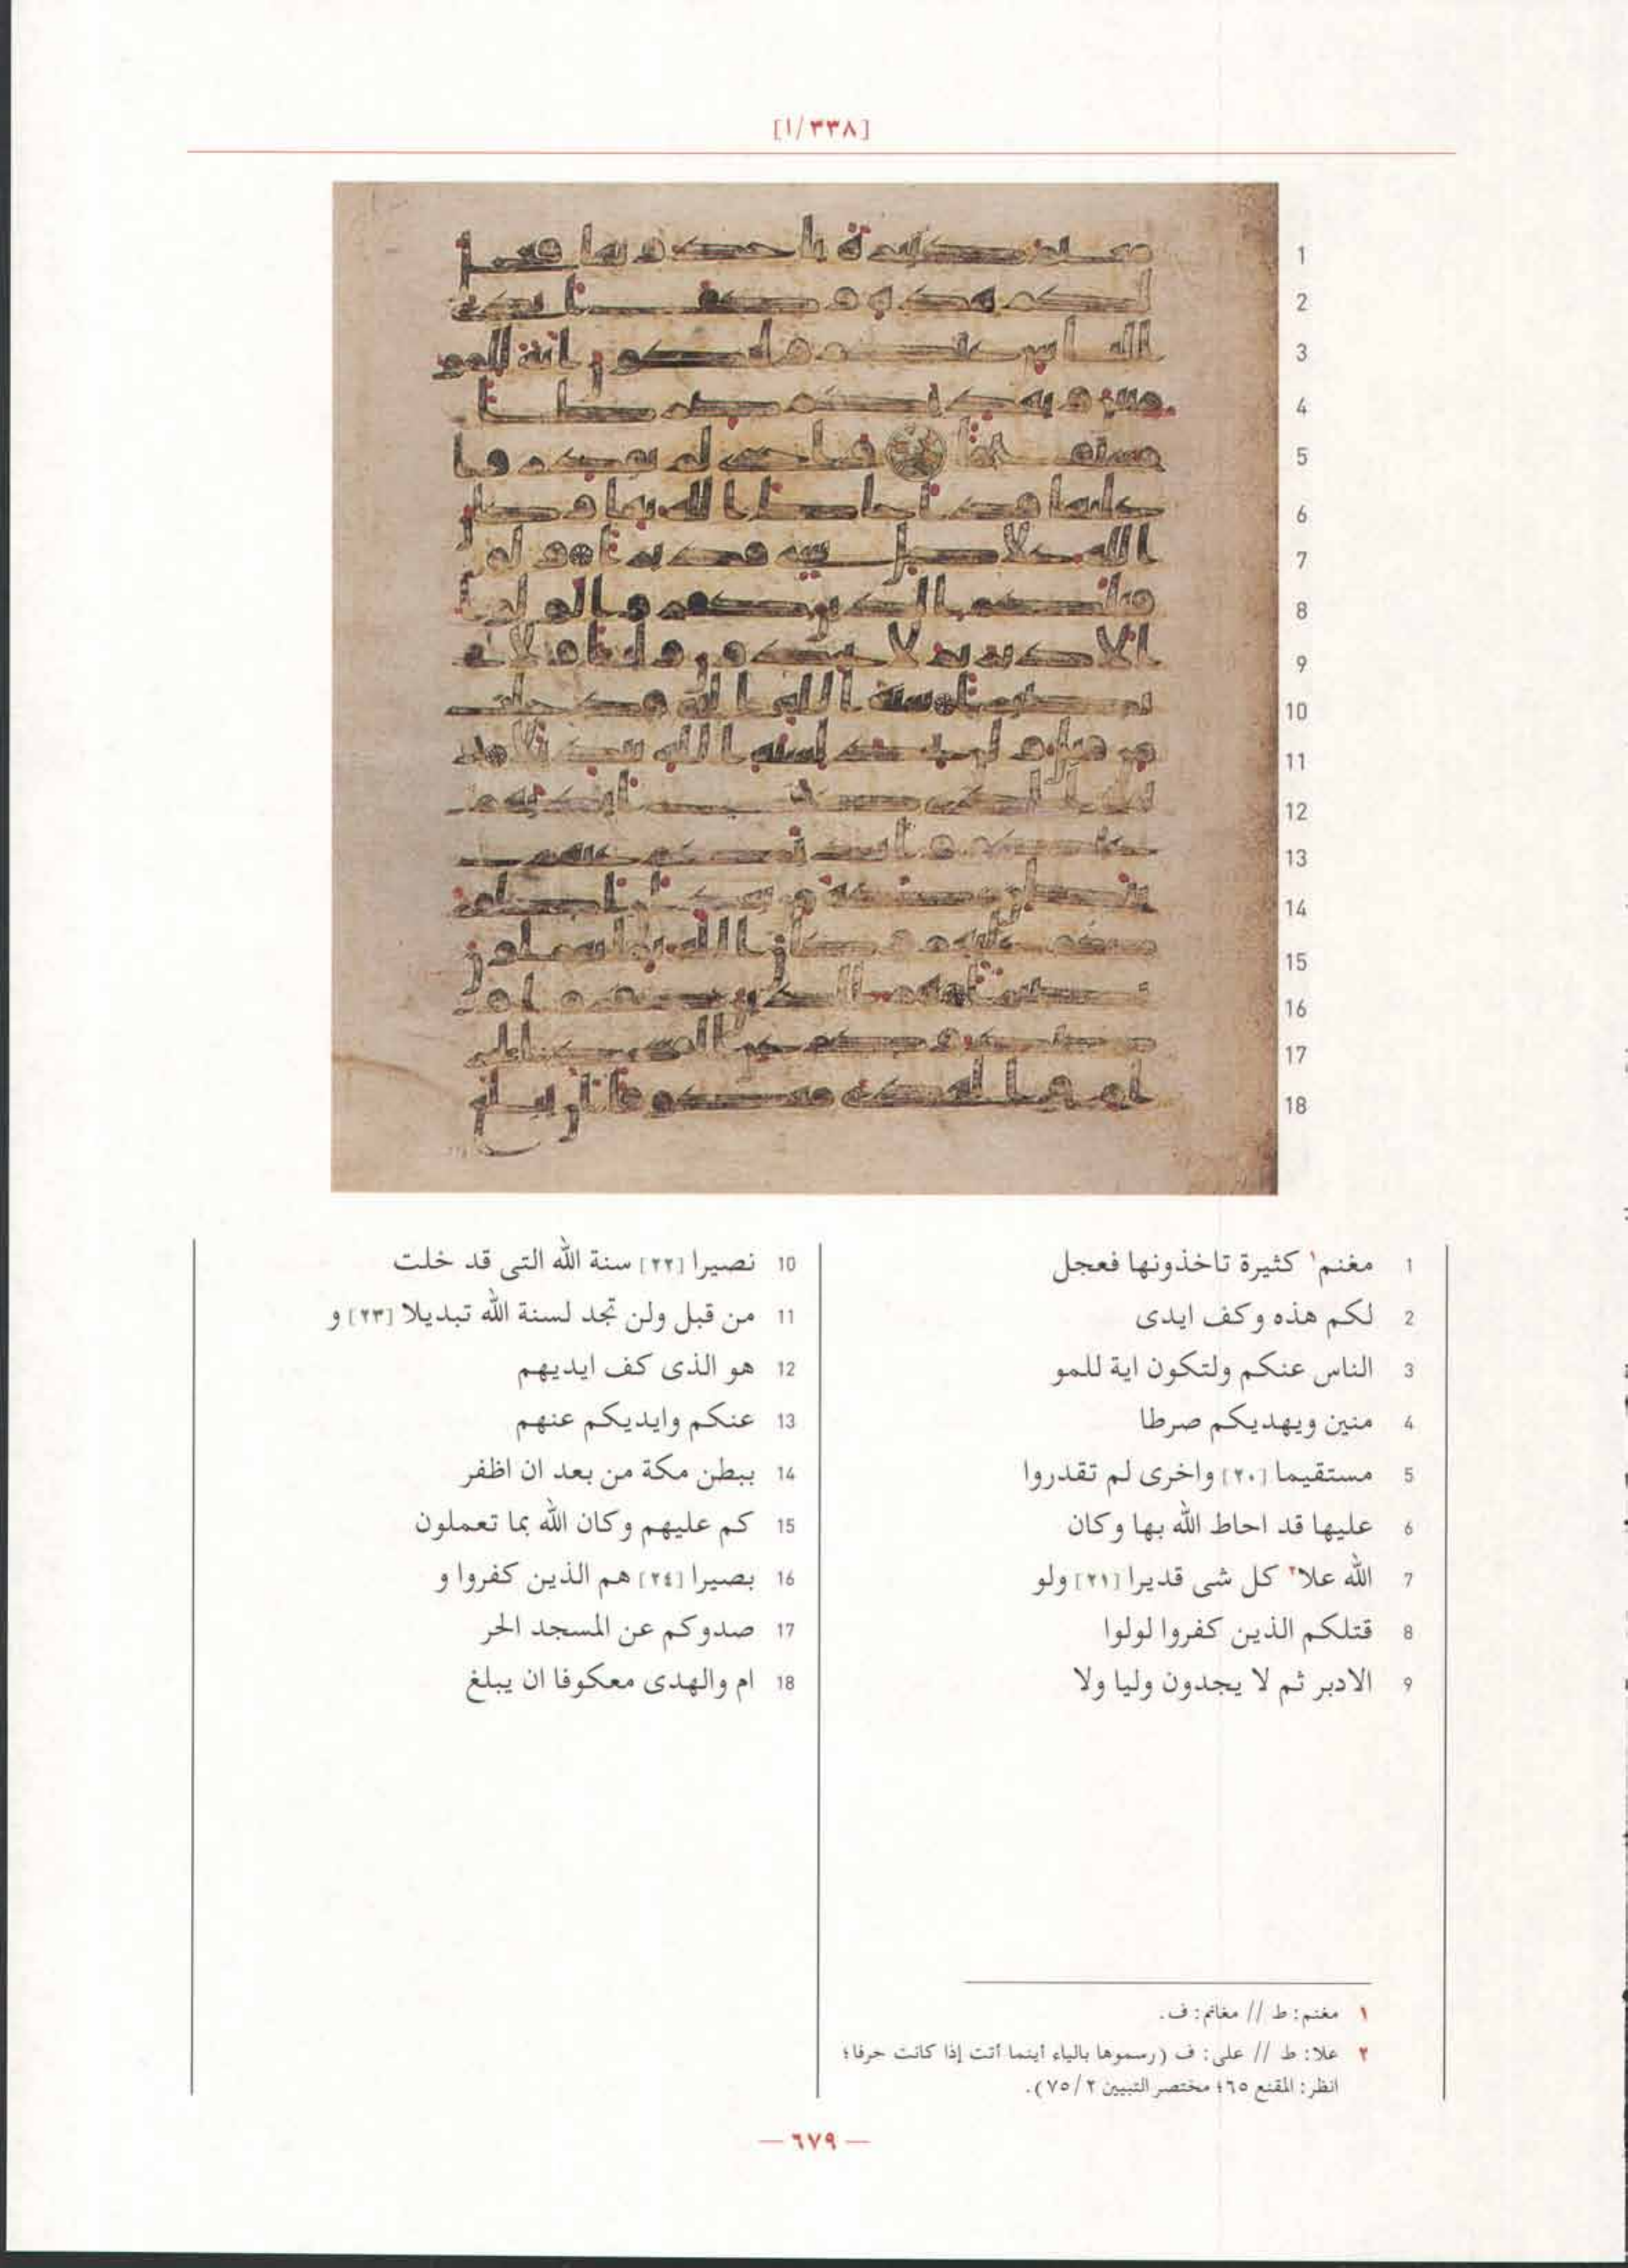 [١/٣٣٨]
1 مغنم١ كثيرة تاخذونها فعجل
2 لكم هذه وكف ايدى
3 الناس عنكم ولتكون اية للمو
4 منين ويهديكم صرطا
5 مستقيما [٢٠] واخرى لم تقدروا
6 عليها قد احاط الله بها وكان
7 الله علا٢ كل شى قديرا [٢١] ولو
8 قتلكم الذين كفروا لولوا
9 الادبر ثم لا يجدون وليا ولا
10 نصيرا [٢٢] سنة الله التى قد خلت
11 من قبل ولن تجد لسنة الله تبديلا [٢٣] و
12 هو الذى كف ايديهم
13 عنكم وايديكم عنهم
14 ببطن مكة من بعد ان اظفر
15 كم عليهم وكان الله بما تعملون
16 بصيرا [٢٤] هم الذين كفروا و
17 صدوكم عن المسجد الحر
18 ام والهدى معكوفا ان يبلغ
١ مغنم: ط // مغانم: ف.
٢ علا: ط // على: ف (رسموها بالياء أينما أتت إذا كانت حرفا؛
انظر: المقنع ٦٥؛ مختصر التبيين ٢/ ٧٥).
— ٦٧٩ —